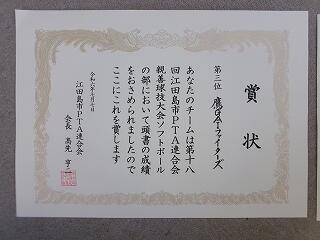 賞状
第三位
あなたのチームは第十八
回江田島市PTA連合会
親善球技大会ソフトボール
の部において頭書の成績
をおさめられましたので
ここにこれを賞します
令和六年七月七日
江田島市PTA連合会
会長